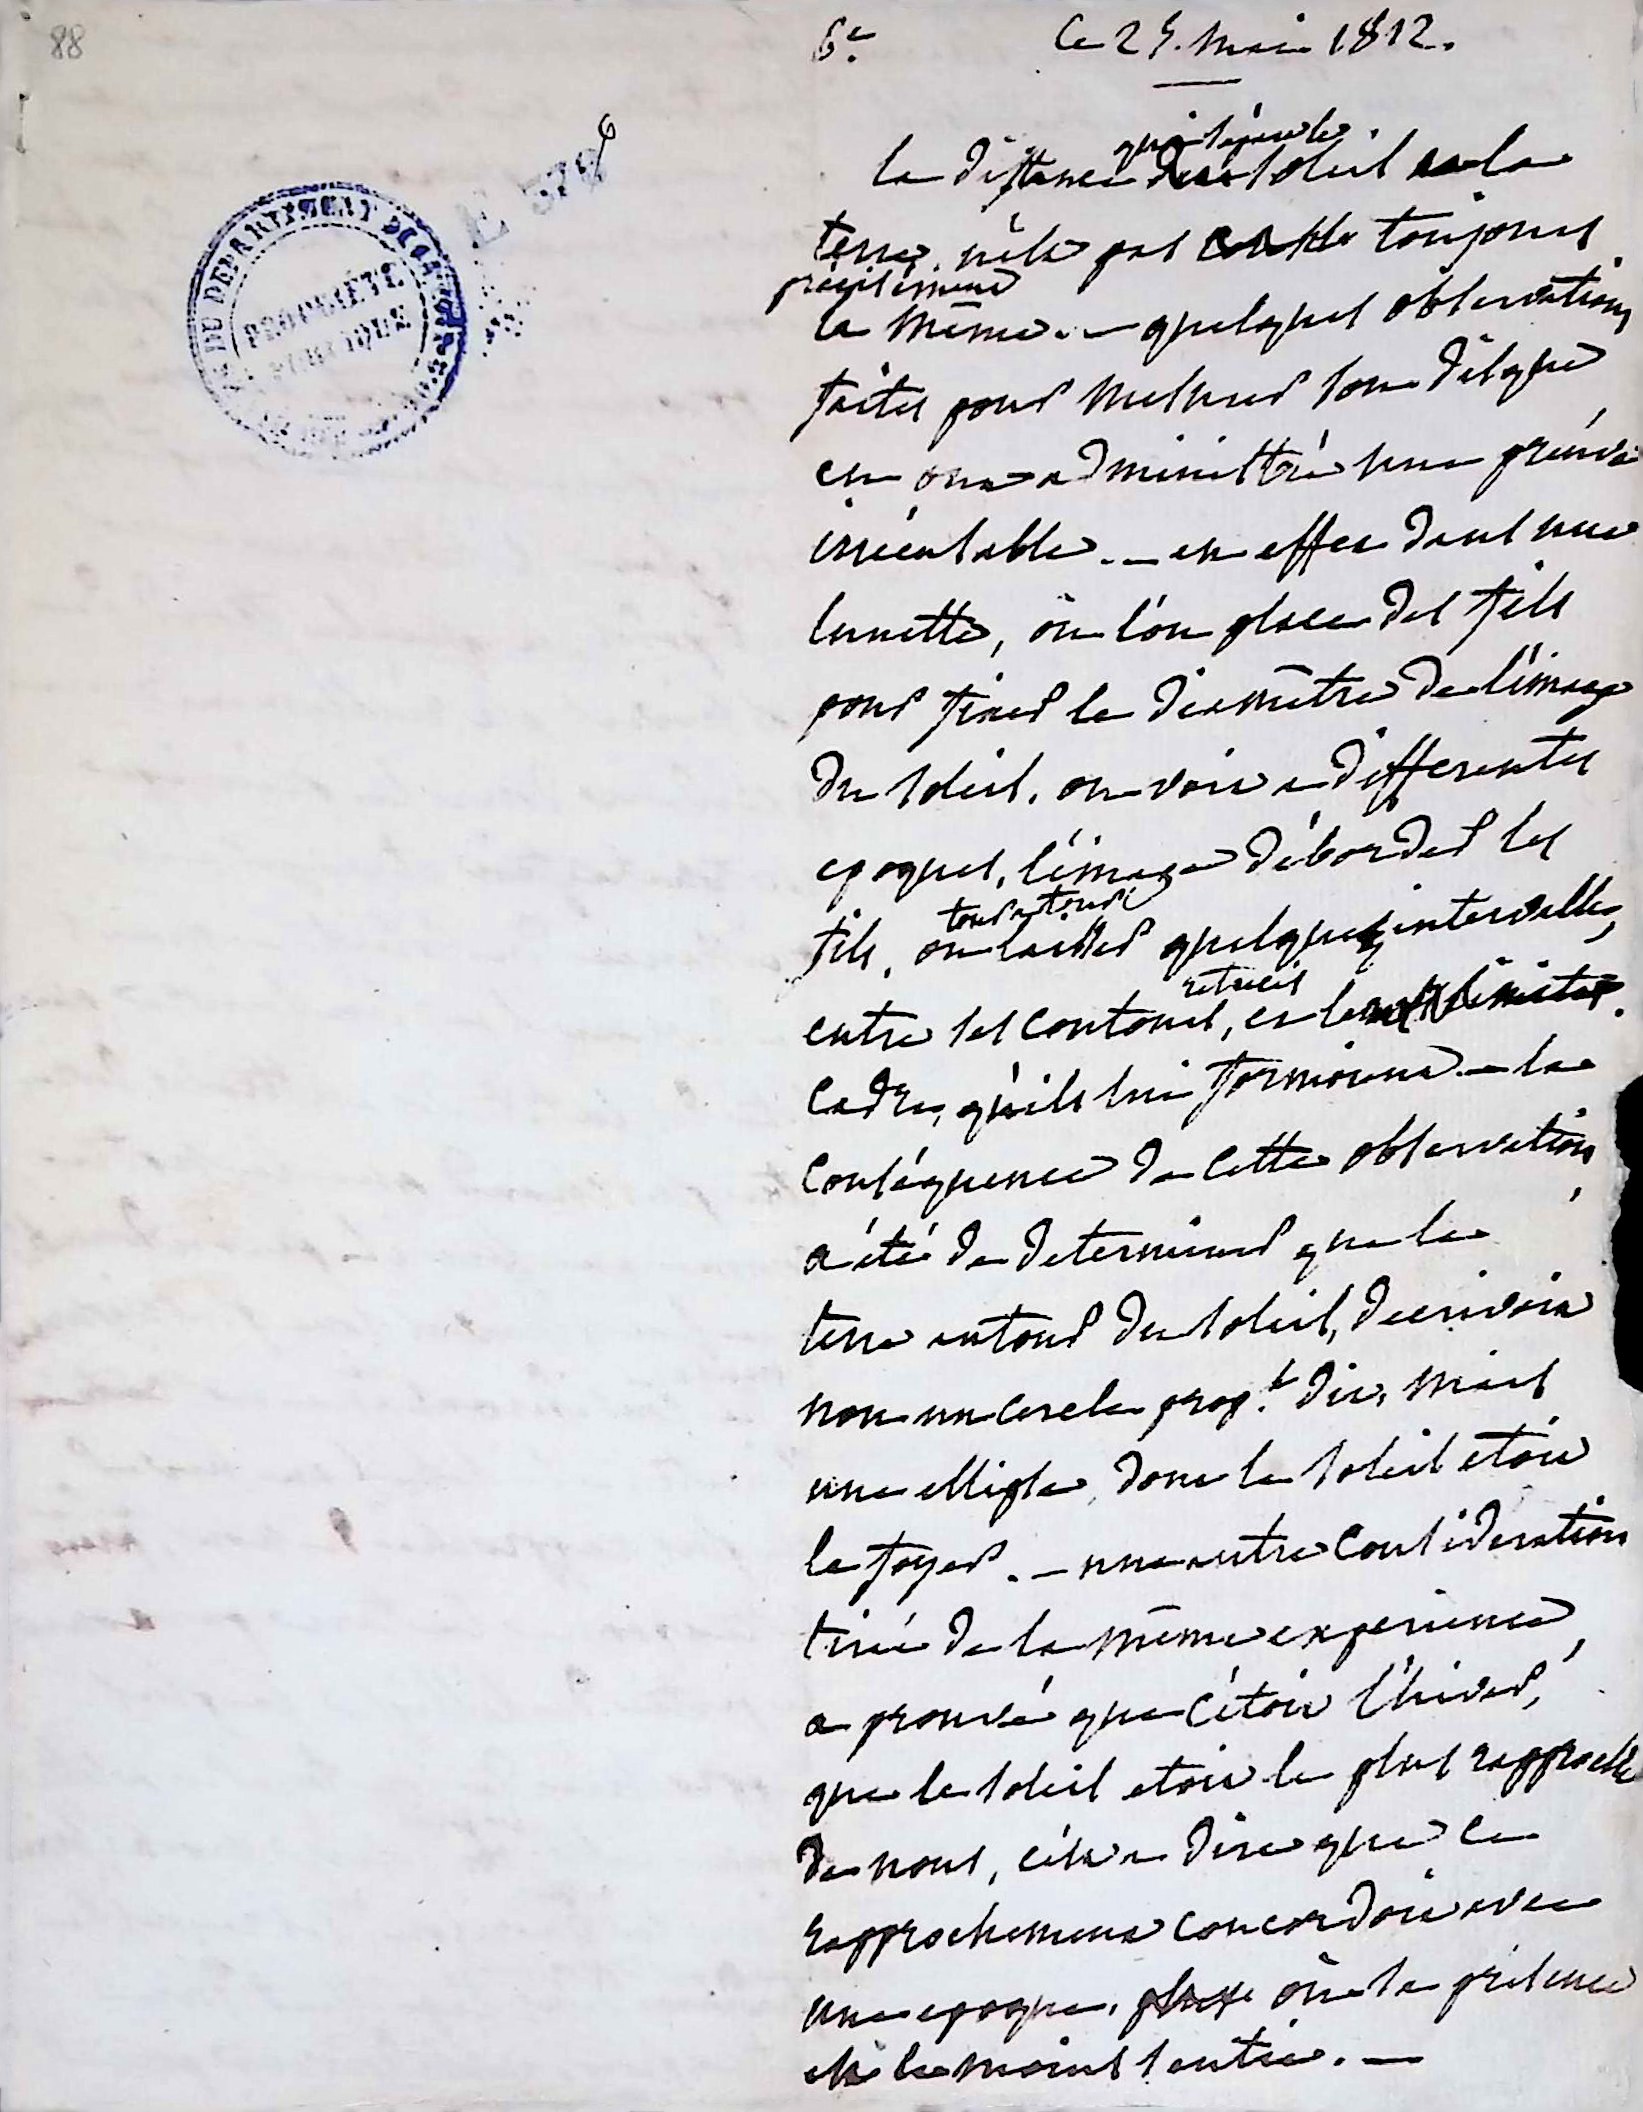 88
6e. Ce 25. mai 1812.
E 378 6
DU DEPARTEMENT
PROPRIÉTÉ
PUBLIQUE
qui sépare le
la distance soleil la
terre n'est pas toujours
précisément
la même. — quelques observations
faites pour mesurer son disque
en ont administré une preuve
irrécusable. — en effet dans une
lunette, où l'on place des fils
pour fixer le diamêtre de l'image
du soleil. on voit a differentes
epoques, l'image déborder les
tour a tour
fils, ou laisser quelques intervalles,
retrecis
entre ses contours, et le
cadre, qu'ils lui formoient. — la
conséquence de cette observation,
a été de determiner que la
terre autour du soleil, decrivoit
non un cercle propt. dit, mais
une ellipse dont le soleil etoit
le foyer. — une autre consideration
tirée de la même experience,
a prouvé que c'étoit l'hiver,
que le soleil etoit le plus rapproché
de nous, c'est a dire que ce
rapprochement concordoit avec
une epoque, où sa présence
est le moins sentie. —